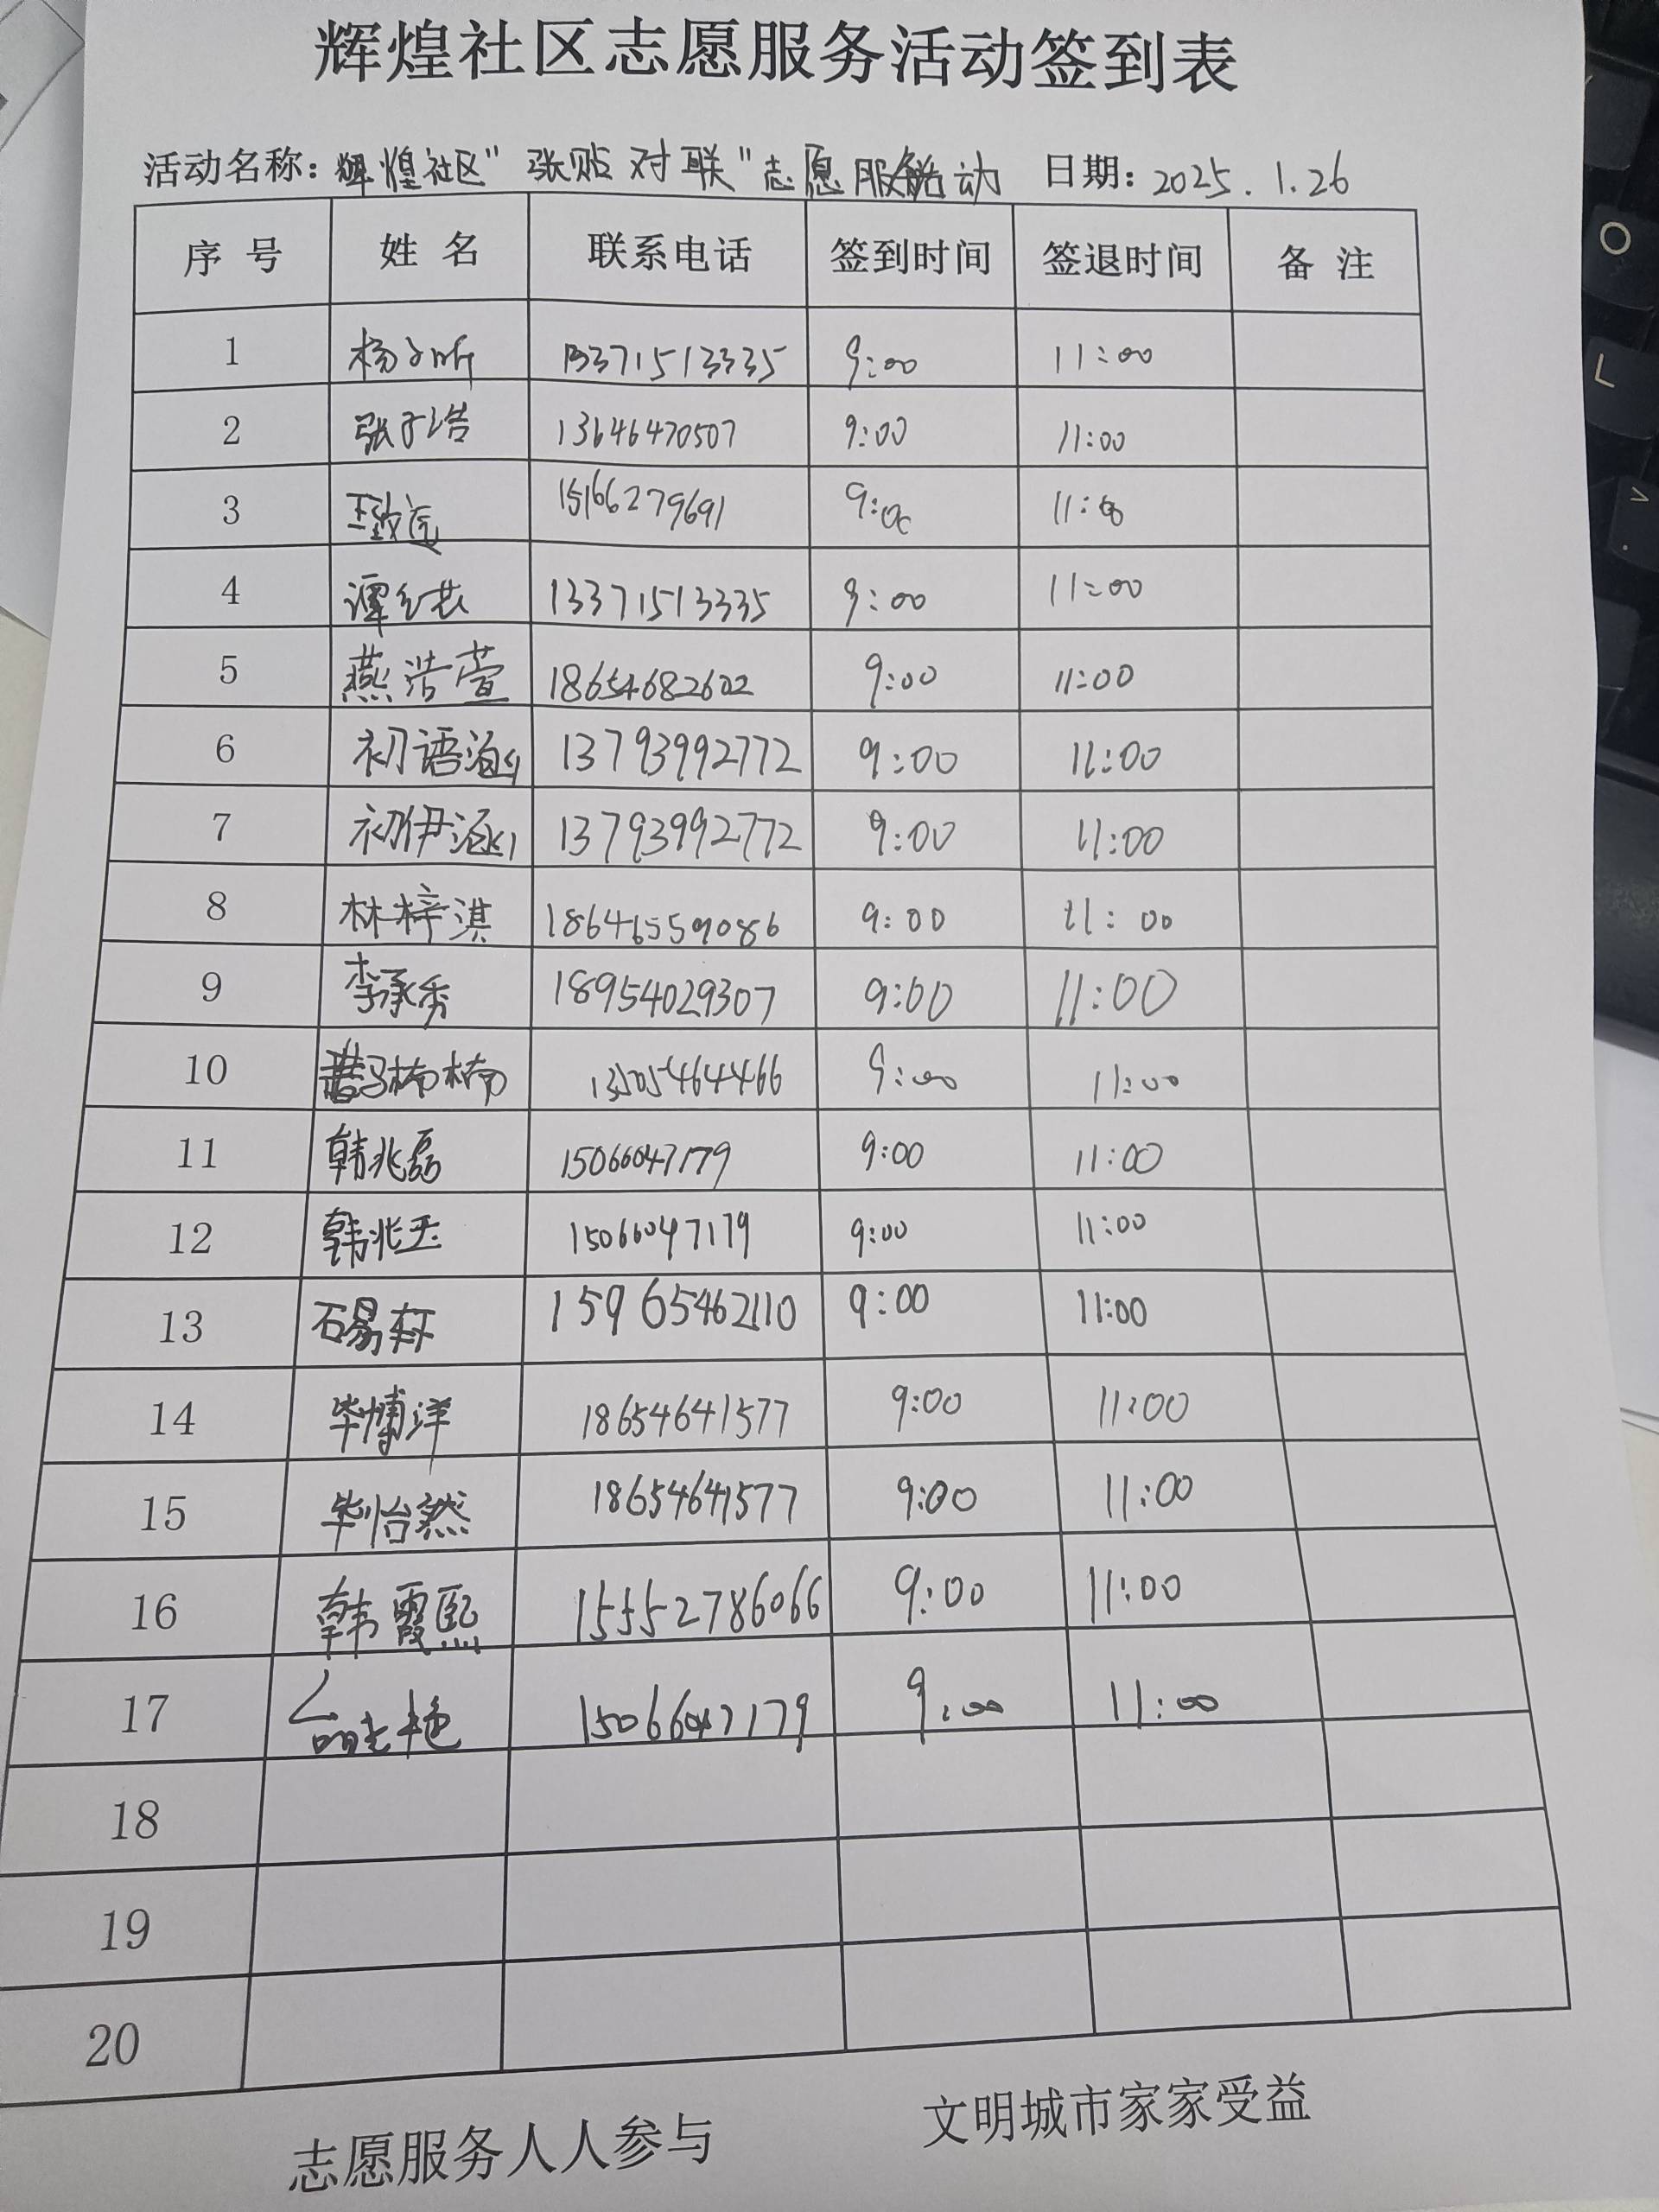 辉煌社区志愿服务活动签到表
活动名称：辉煌社区"张贴对联"志愿服务活动 日期：2025.1.26
序号 姓名 联系电话 签到时间 签退时间 备注
1 杨子昕 13371513335 9:00 11:00
2 张子浩 13646470507 9:00 11:00
3 王致远 15166279691 9:00 11:00
4 谭 13371513335 9:00 11:00
5 燕浩萱 18654682602 9:00 11:00
6 初语涵 13793992772 9:00 11:00
7 初伊涵 13793992772 9:00 11:00
8 林梓淇 9:00 11:00
9 李承秀 18954029307 9:00 11:00
10 楠楠 13505464466 9:00 11:00
11 韩兆磊 15066047179 9:00 11:00
12 韩兆玉 15066047179 9:00 11:00
13 石易轩 15965462110 9:00 11:00
14 毕博洋 18654641577 9:00 11:00
15 毕怡然 18654641577 9:00 11:00
16 韩霞熙 15552786066 9:00 11:00
17 15066047179 9:00 11:00
18
19
20
志愿服务人人参与 文明城市家家受益
O
L
>
.